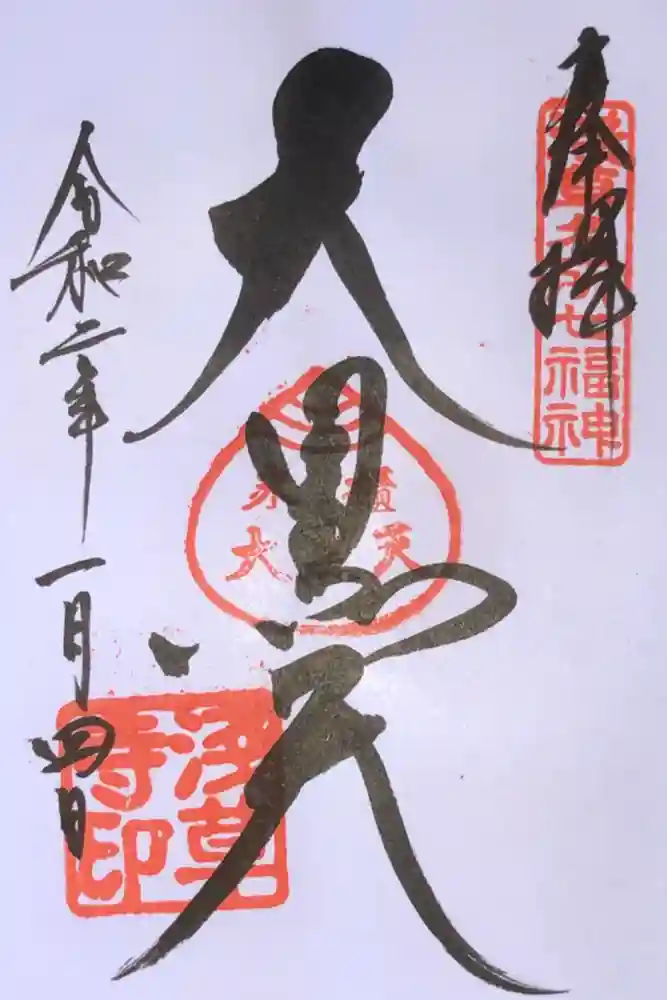 奉拝
浅草名所七福神
大黒天
米櫃
大 天
浅草
寺印
令和二年一月四日